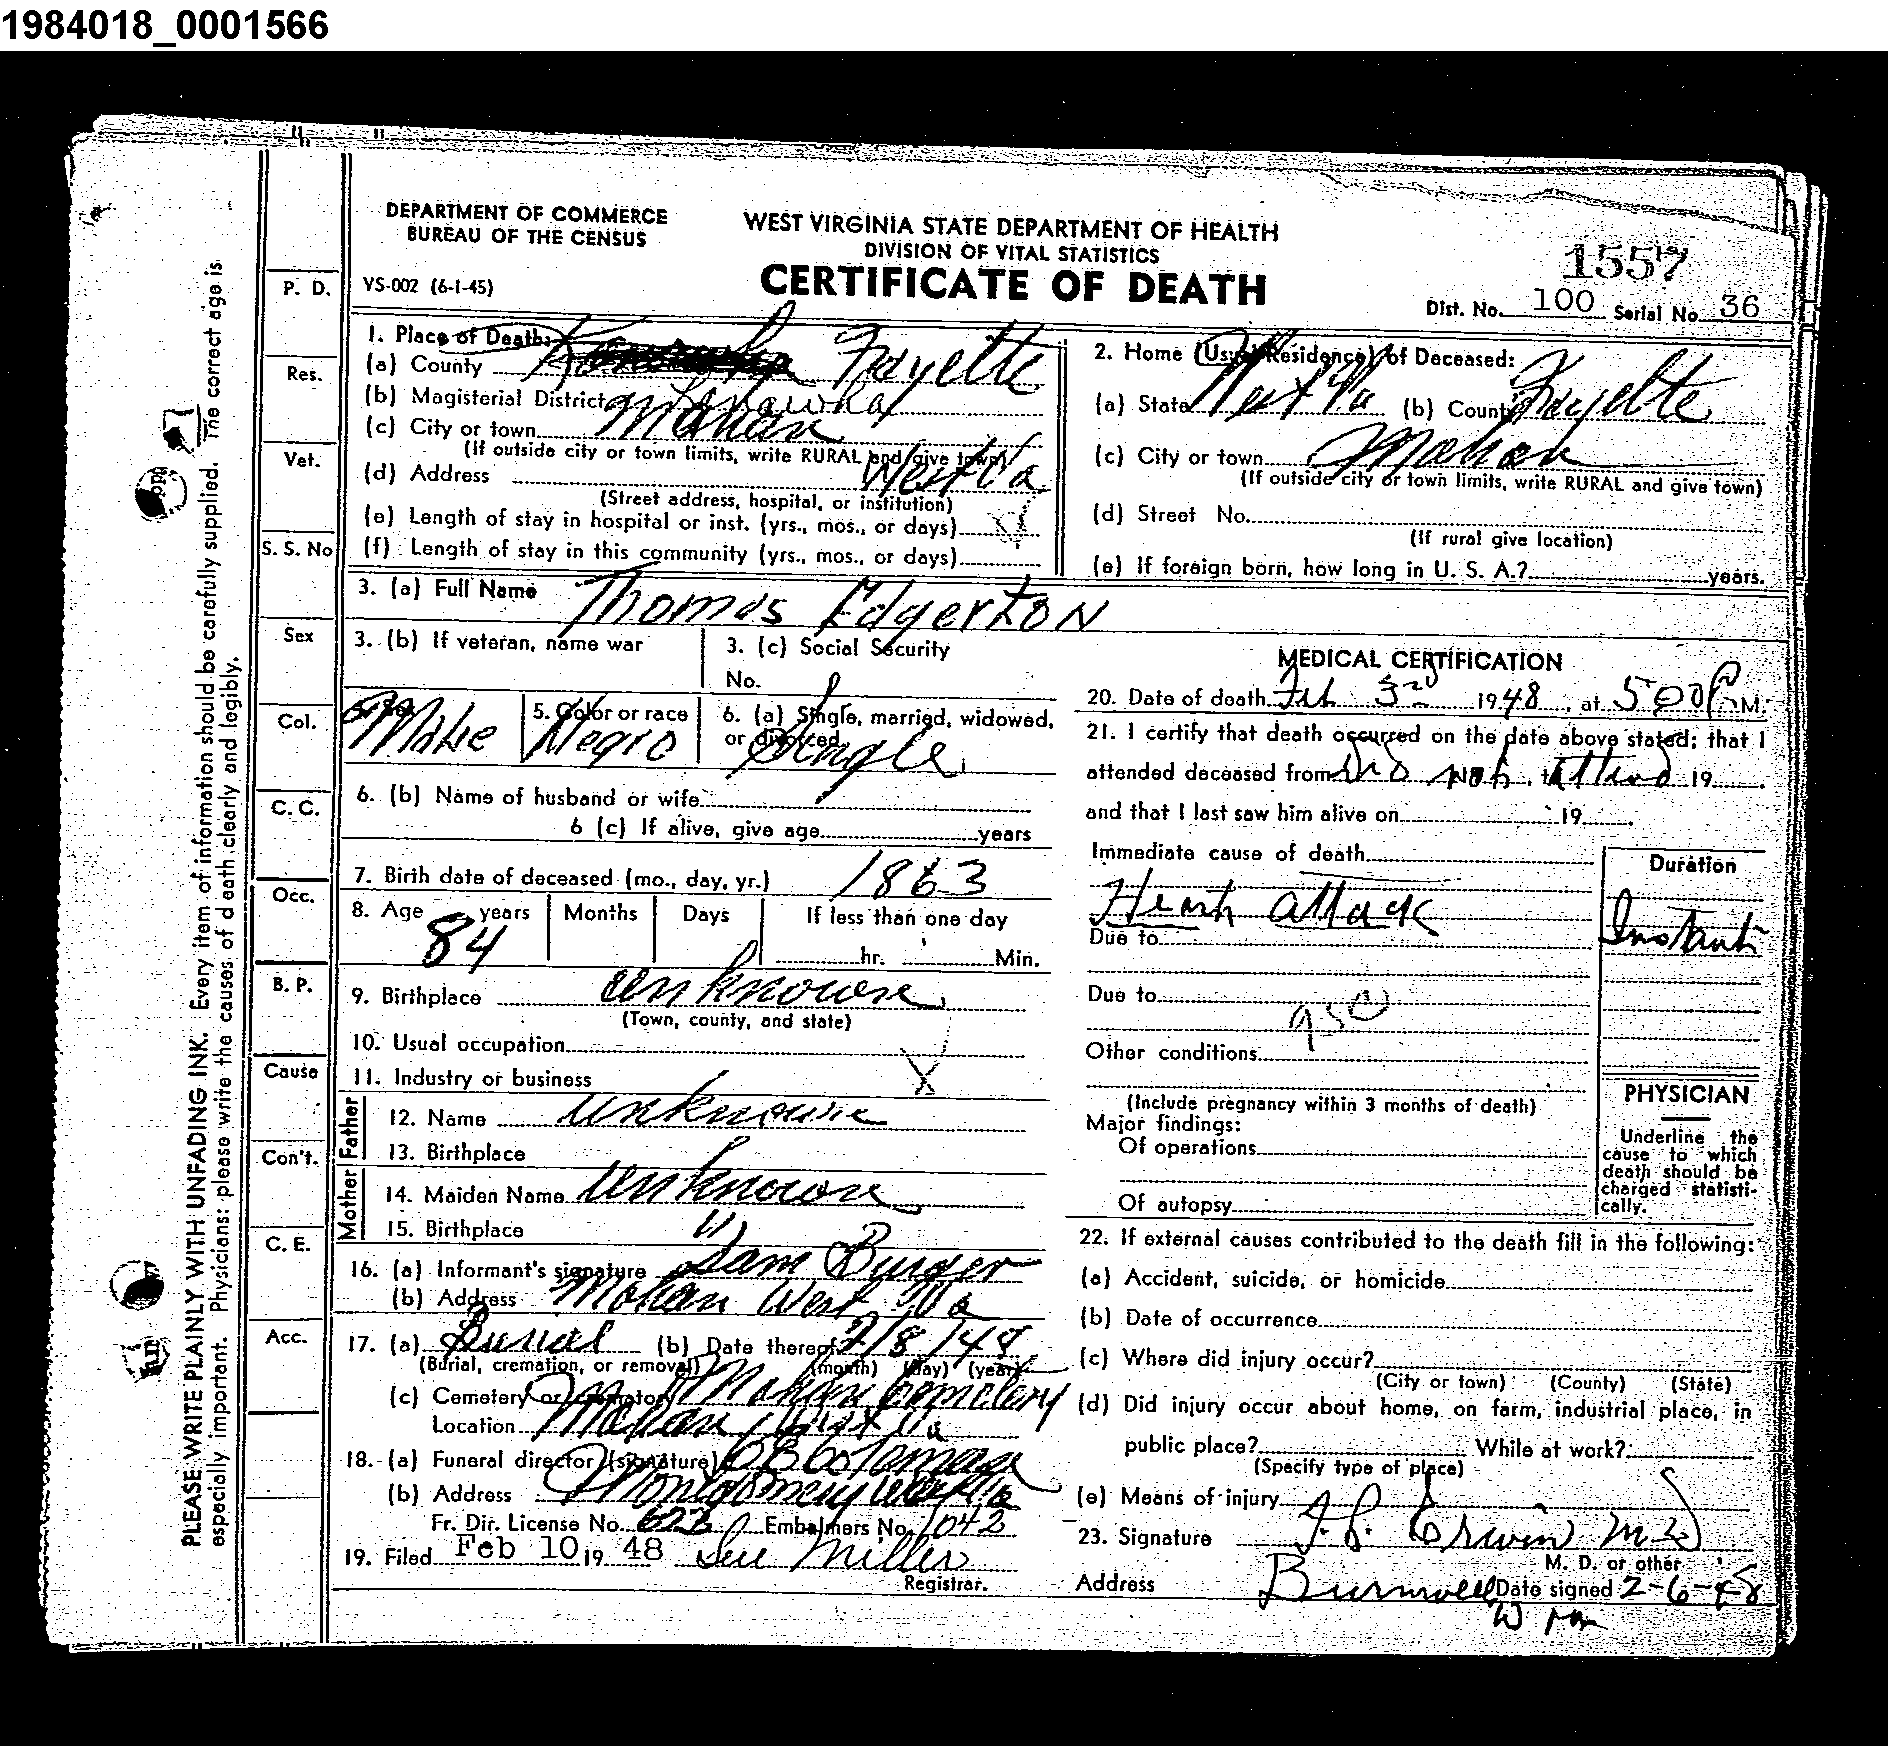 1984018_0001566
DEPARTMENT OF COMMERCE
BUREAU OF THE CENSUS
WEST VIRGINIA STATE DEPARTMENT OF HEALTH
DIVISION OF VITAL STATISTICS
CERTIFICATE OF DEATH
VS-002 (6-1-45)
1557
Dist. No. 100 Serial No. 36
PLEASE WRITE PLAINLY WITH UNFADING INK. Every item of information should be carefully supplied. The correct age is
especially important. Physicians: please write the causes of death clearly and legibly.
P. D.
Res.
Vet.
S. S. No
Sex
Col.
C. C.
Occ.
B. P.
Cause
Con't.
C. E.
Acc.
1. Place of Death:
(a) County Fayette
(b) Magisterial District
(c) City or town Mahan
(If outside city or town limits, write RURAL and give town)
(d) Address West Va
(Street address, hospital, or institution)
(e) Length of stay in hospital or inst. (yrs., mos., or days)
(f) Length of stay in this community (yrs., mos., or days)
2. Home (Usual Residence) of Deceased:
(a) State West Va (b) County Fayette
(c) City or town Mahan
(If outside city or town limits, write RURAL and give town)
(d) Street No.
(If rural give location)
(e) If foreign born, how long in U. S. A.? years.
3. (a) Full Name Thomas Edgerton
3. (b) If veteran, name war
3. (c) Social Security
No.
5. Color or race Negro
6. (a) Single, married, widowed,
or divorced Single
6. (b) Name of husband or wife
6 (c) If alive, give age years
7. Birth date of deceased (mo., day, yr.) 1863
8. Age 84 years Months Days If less than one day
hr. Min.
9. Birthplace unknown
(Town, county, and state)
10. Usual occupation
11. Industry or business
Father
12. Name unknown
13. Birthplace
Mother
14. Maiden Name unknown
15. Birthplace "
16. (a) Informant's signature Sam Burger
(b) Address Mahan West Va
17. (a) Burial (b) Date thereof 2/8/48
(Burial, cremation, or removal) (month) (day) (year)
(c) Cemetery or crematory Mahan Cemetery
Location Mahan West Va
18. (a) Funeral director (signature)
(b) Address Montgomery West Va
Fr. Dir. License No. 623 Embalmers No. 1042
19. Filed Feb 10 19 48 Sue Miller
Registrar.
MEDICAL CERTIFICATION
20. Date of death Feb 3rd 1948, at 5:00 P M.
21. I certify that death occurred on the date above stated; that I
attended deceased from Did not attend 19
and that I last saw him alive on 19
Immediate cause of death
Heart attack
Duration
Instant
Due to
Due to
950
Other conditions
(Include pregnancy within 3 months of death)
Major findings:
Of operations
Of autopsy
PHYSICIAN
Underline the
cause to which
death should be
charged statisti-
cally.
22. If external causes contributed to the death fill in the following:
(a) Accident, suicide, or homicide
(b) Date of occurrence
(c) Where did injury occur?
(City or town) (County) (State)
(d) Did injury occur about home, on farm, industrial place, in
public place? While at work?
(Specify type of place)
(e) Means of injury
23. Signature Erwin M.D
M. D. or other
Address Burnwell Date signed 2-6-48
W Va